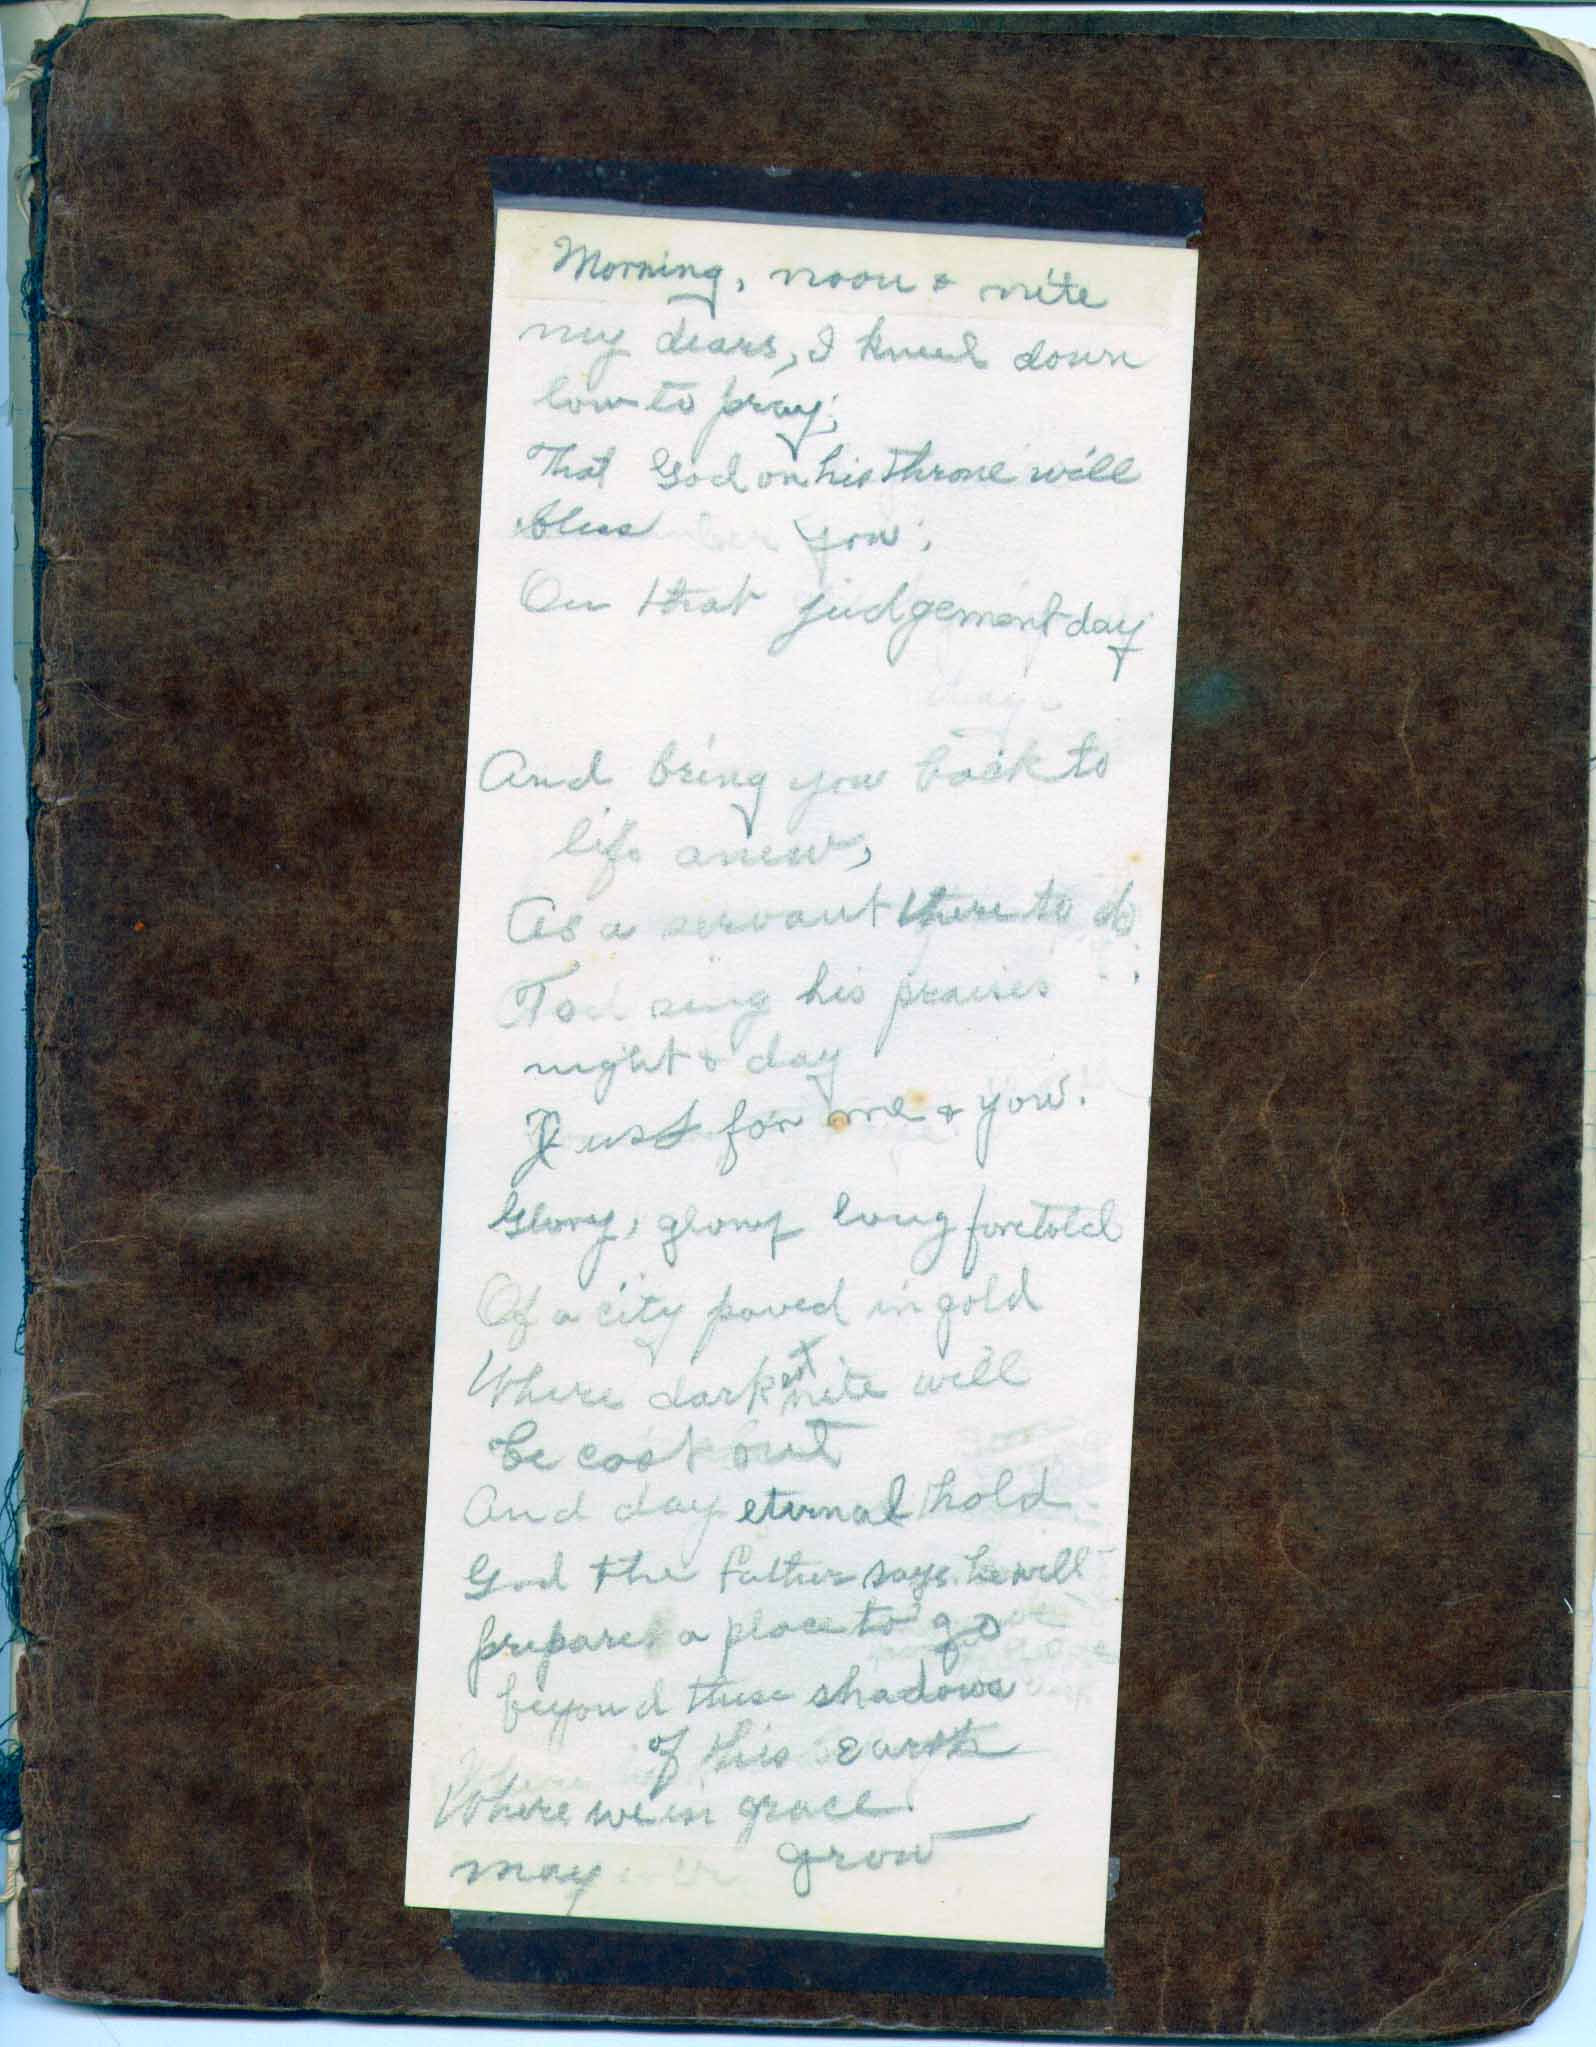 Morning, noon & nite
my dears, I kneel down
low to pray;
That God on his throne will
bless you;
On that judgement day
And bring you back to
life anew,
As a servant there to do
To sing his praises
night & day
Just for me & you.
Glory, glory long foretold
Of a city paved in gold
Where darkest nite will
be cast out
And day eternal hold.
God the Father says he will
prepare a place to go
beyond these shadows
of this earth
Where we in grace
may grow